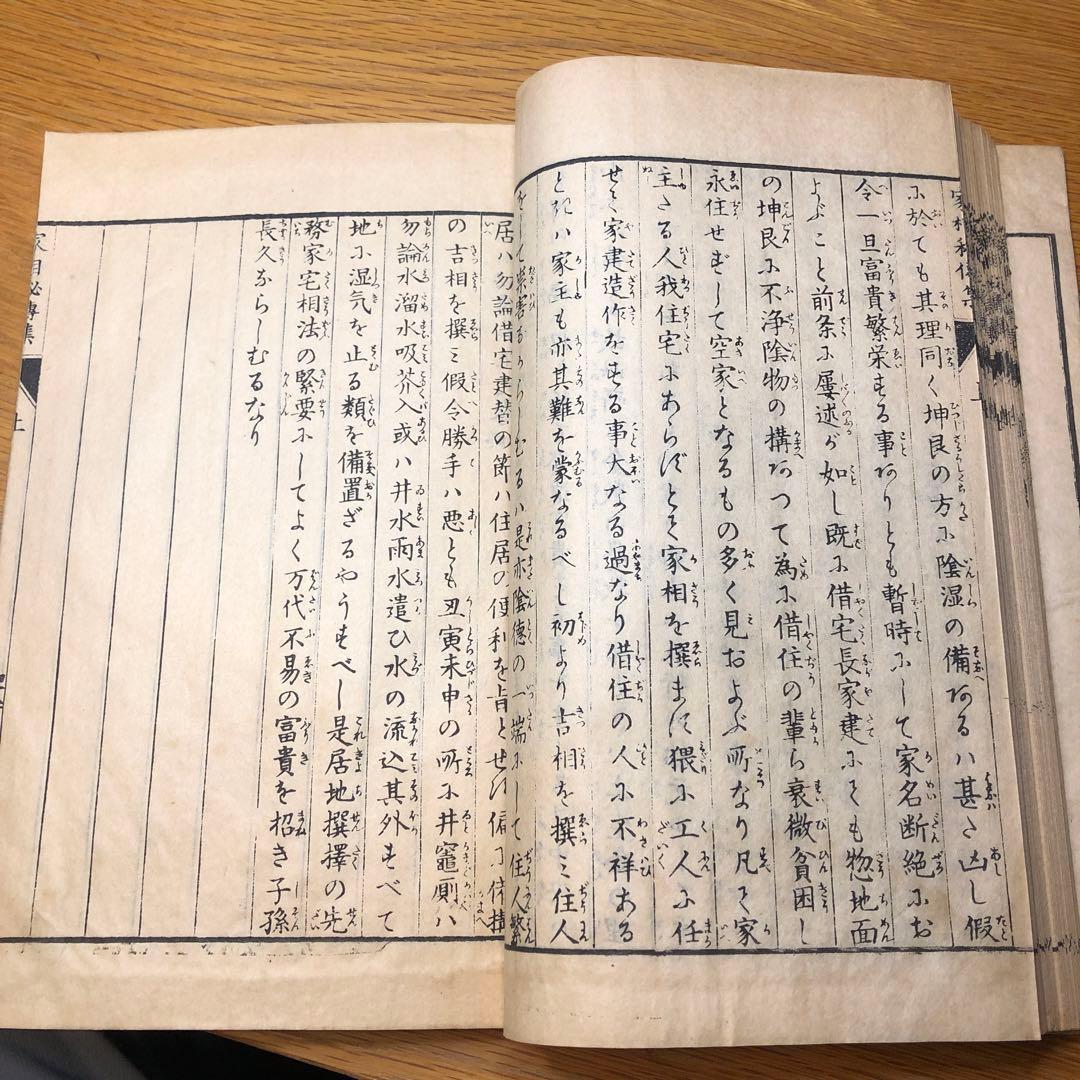 に於ても其理同く坤艮の方に陰湿の備あるハ甚だ凶し假
令一旦富貴繁栄する事ありとも暫時にして家名断絶にお
よぶこと前条に屡述が如し既に借宅長家建にても惣地面
の坤艮に不浄陰物の構あつて為に借住の輩ら衰微貧困し
永住せずして空家となるもの多く見およぶ所なり凡て家
主たる人我住宅にあらずとて家相を撰まず猥に工人に任
せて家建造作をする事大なる過なり借住の人に不祥ある
ときハ家主も亦其難を蒙なるべし初より吉相を撰ミ住人
るハ是亦陰徳の一端にして住人繁
居ハ勿論借宅建替の節ハ住居の便利を旨とせず偏に
の吉相を撰ミ假令勝手ハ悪とも丑寅未申の所に井竈厠ハ
勿論水溜水吸芥入或ハ井水雨水遣ひ水の流込其外すべて
地に湿気を止る類を備置ざるやうすべし是居地撰擇の先
務家宅相法の緊要にしてよく万代不易の富貴を招き子孫
長久ならしむるなり
家相必傳集
上